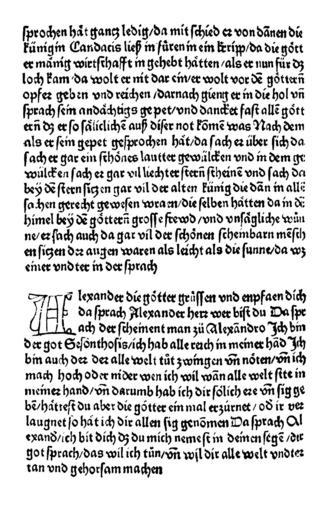 sprochen hāt gancz ledig/da mit schied er von dānen die
künigin Candacis ließ in fůren in ein kripp/da die gött
er mānig wirtschafft in gehebt hātten/als er nun für dz
loch kam/da wolt er nit dar ein/er wolt vor dē göttern̄
opfer geben vnd reichen/darnach gieng er in die hol vn̄
sprach sein andāchtigs gepet/vnd dancket fast allē gött
ern̄ dz er so sāliclichē auß diser not kōmē was Nach dem
als er sein gepet gesprochen hāt/da sach er über sich da
sach er gar ein schönes lautter gewülcken vnd in dem ge
wülcken sach er gar vil liechter stern̄ scheinē vnd sach da
bey dē stern̄ siczen gar vil der alten künig die dān in allē
sachen gerecht gewesen waren/die selben hātten da in dē
himel bey dē göttern̄ grosse frewd/vnd vnsāgliche wün
ne/er sach auch da gar vil der schönen scheinbarn mensch
en siczen der augen waren als leicht als die sunne/da wz
einer vndter in der sprach
Alexander die götter grüssen vnd enpfaen dich
da sprach Alexander herr wer bist du Da spr
ach der scheinent man zů Alexādro Ich bin
der got Sesonthosis/ich hab alle reich in meiner hād Ich
bin auch der der alle welt tůt zwingen vn̄ nöten/vn̄ ich
mach hoch oder nider wen ich wil wān alle welt stet in
meiner hand/vn̄ darumb hab ich dir sölich ere vn̄ sig ge
bē/hātest du aber die götter ein mal erzürnet/od̄ ir ver
laugnet so hāt ich dir allen sig genōmen Da sprach Al
exand̄/ich bit dich dz du mich nemest in deinen segē/der
got sprach/das wil ich tůn/vn̄ wil dir alle welt vndter
tan vnd gehorsam machen